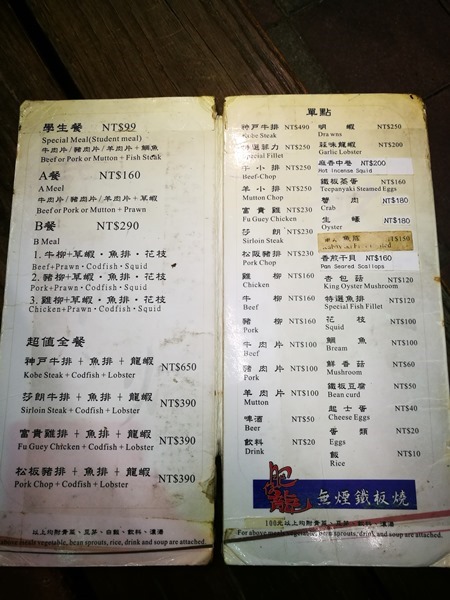 學生餐 NT$99
Special Meal(Student meal)
牛肉片/豬肉片/羊肉片+鯛魚
Beef or Pork or Mutton + Fish Steak
A餐 NT$160
A Meal
牛肉片/豬肉片/羊肉片+草蝦
Beef or Pork or Mutton + Prawn
B餐 NT$290
B Meal
1. 牛柳+草蝦、魚排、花枝
Beef+Prawn、Codfish、Squid
2. 豬柳+草蝦、魚排、花枝
Pork+Prawn、Codfish、Squid
3. 雞柳+草蝦、魚排、花枝
Chicken+Prawn、Codfish、Squid
超值全餐
神戶牛排 + 魚排 + 龍蝦 NT$650
Kobe Steak + Codfish + Lobster
莎朗牛排 + 魚排 + 龍蝦 NT$390
Sirloin Steak + Codfish + Lobster
富貴雞排 + 魚排 + 龍蝦 NT$390
Fu Guey Chicken + Codfish + Lobster
松板豬排 + 魚排 + 龍蝦 NT$390
Pork Chop + Codfish + Lobster
以上均附青菜、豆芽、白飯、飲料、濃湯
For above meals vegetable, bean sprouts, rice, drink and soup are attached.
單點
神戶牛排 NT$490
Kobe Steak
特選菲力 NT$250
Special Fillet
牛小排 NT$250
Beef-Chop
羊小排 NT$250
Mutton Chop
富貴雞 NT$230
Fu Guey Chicken
莎朗 NT$230
Sirloin Steak
松阪豬排 NT$230
Pork Chop
雞柳 NT$160
Chicken
牛柳 NT$160
Beef
豬柳 NT$160
Pork
牛肉片 NT$100
Beef
豬肉片 NT$100
Pork
羊肉片 NT$100
Mutton
啤酒 NT$50
Beer
飲料 NT$20
Drink
明蝦 NT$250
Drawns
蒜味龍蝦 NT$200
Garlic Lobster
麻香中卷 NT$200
Hot Incense Squid
鐵板茶蛋 NT$160
Teepanyaki Steamed Eggs
蟹肉 NT$180
Crab
生蠔 NT$180
Oyster
魚 NT$150
香煎干貝 NT$160
Pan Seared Scallops
杏包菇 NT$120
King Oyster Mushroom
特選魚排 NT$120
Special Fish Fillet
花枝 NT$100
Squid
鯛魚 NT$100
Bream
鮮香菇 NT$60
Mushroom
鐵板豆腐 NT$50
Bean curd
起士蛋 NT$40
Cheese Eggs
蛋類 NT$20
Eggs
飯 NT$10
Rice
無煙鐵板燒
100元以上均附青菜、豆芽、白飯、飲料、濃湯
For above meals vegetable, bean sprouts, rice, drink and soup are attached.